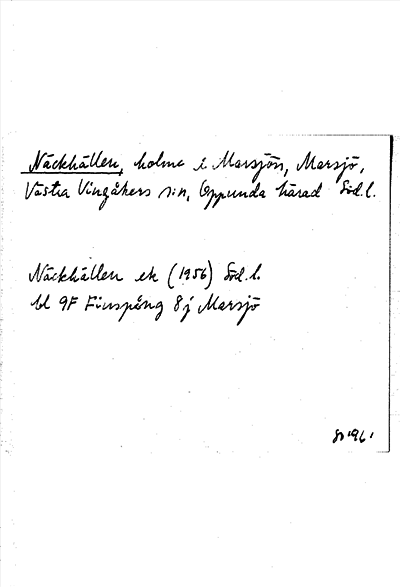 Näckhällen, holme i Marsjön, Marsjö,
Västra Vingåkers sn, Oppunda härad Söd.l.
Näckhällen ek (1956) Söd.l.
bl 9F Finspång 8j Marsjö